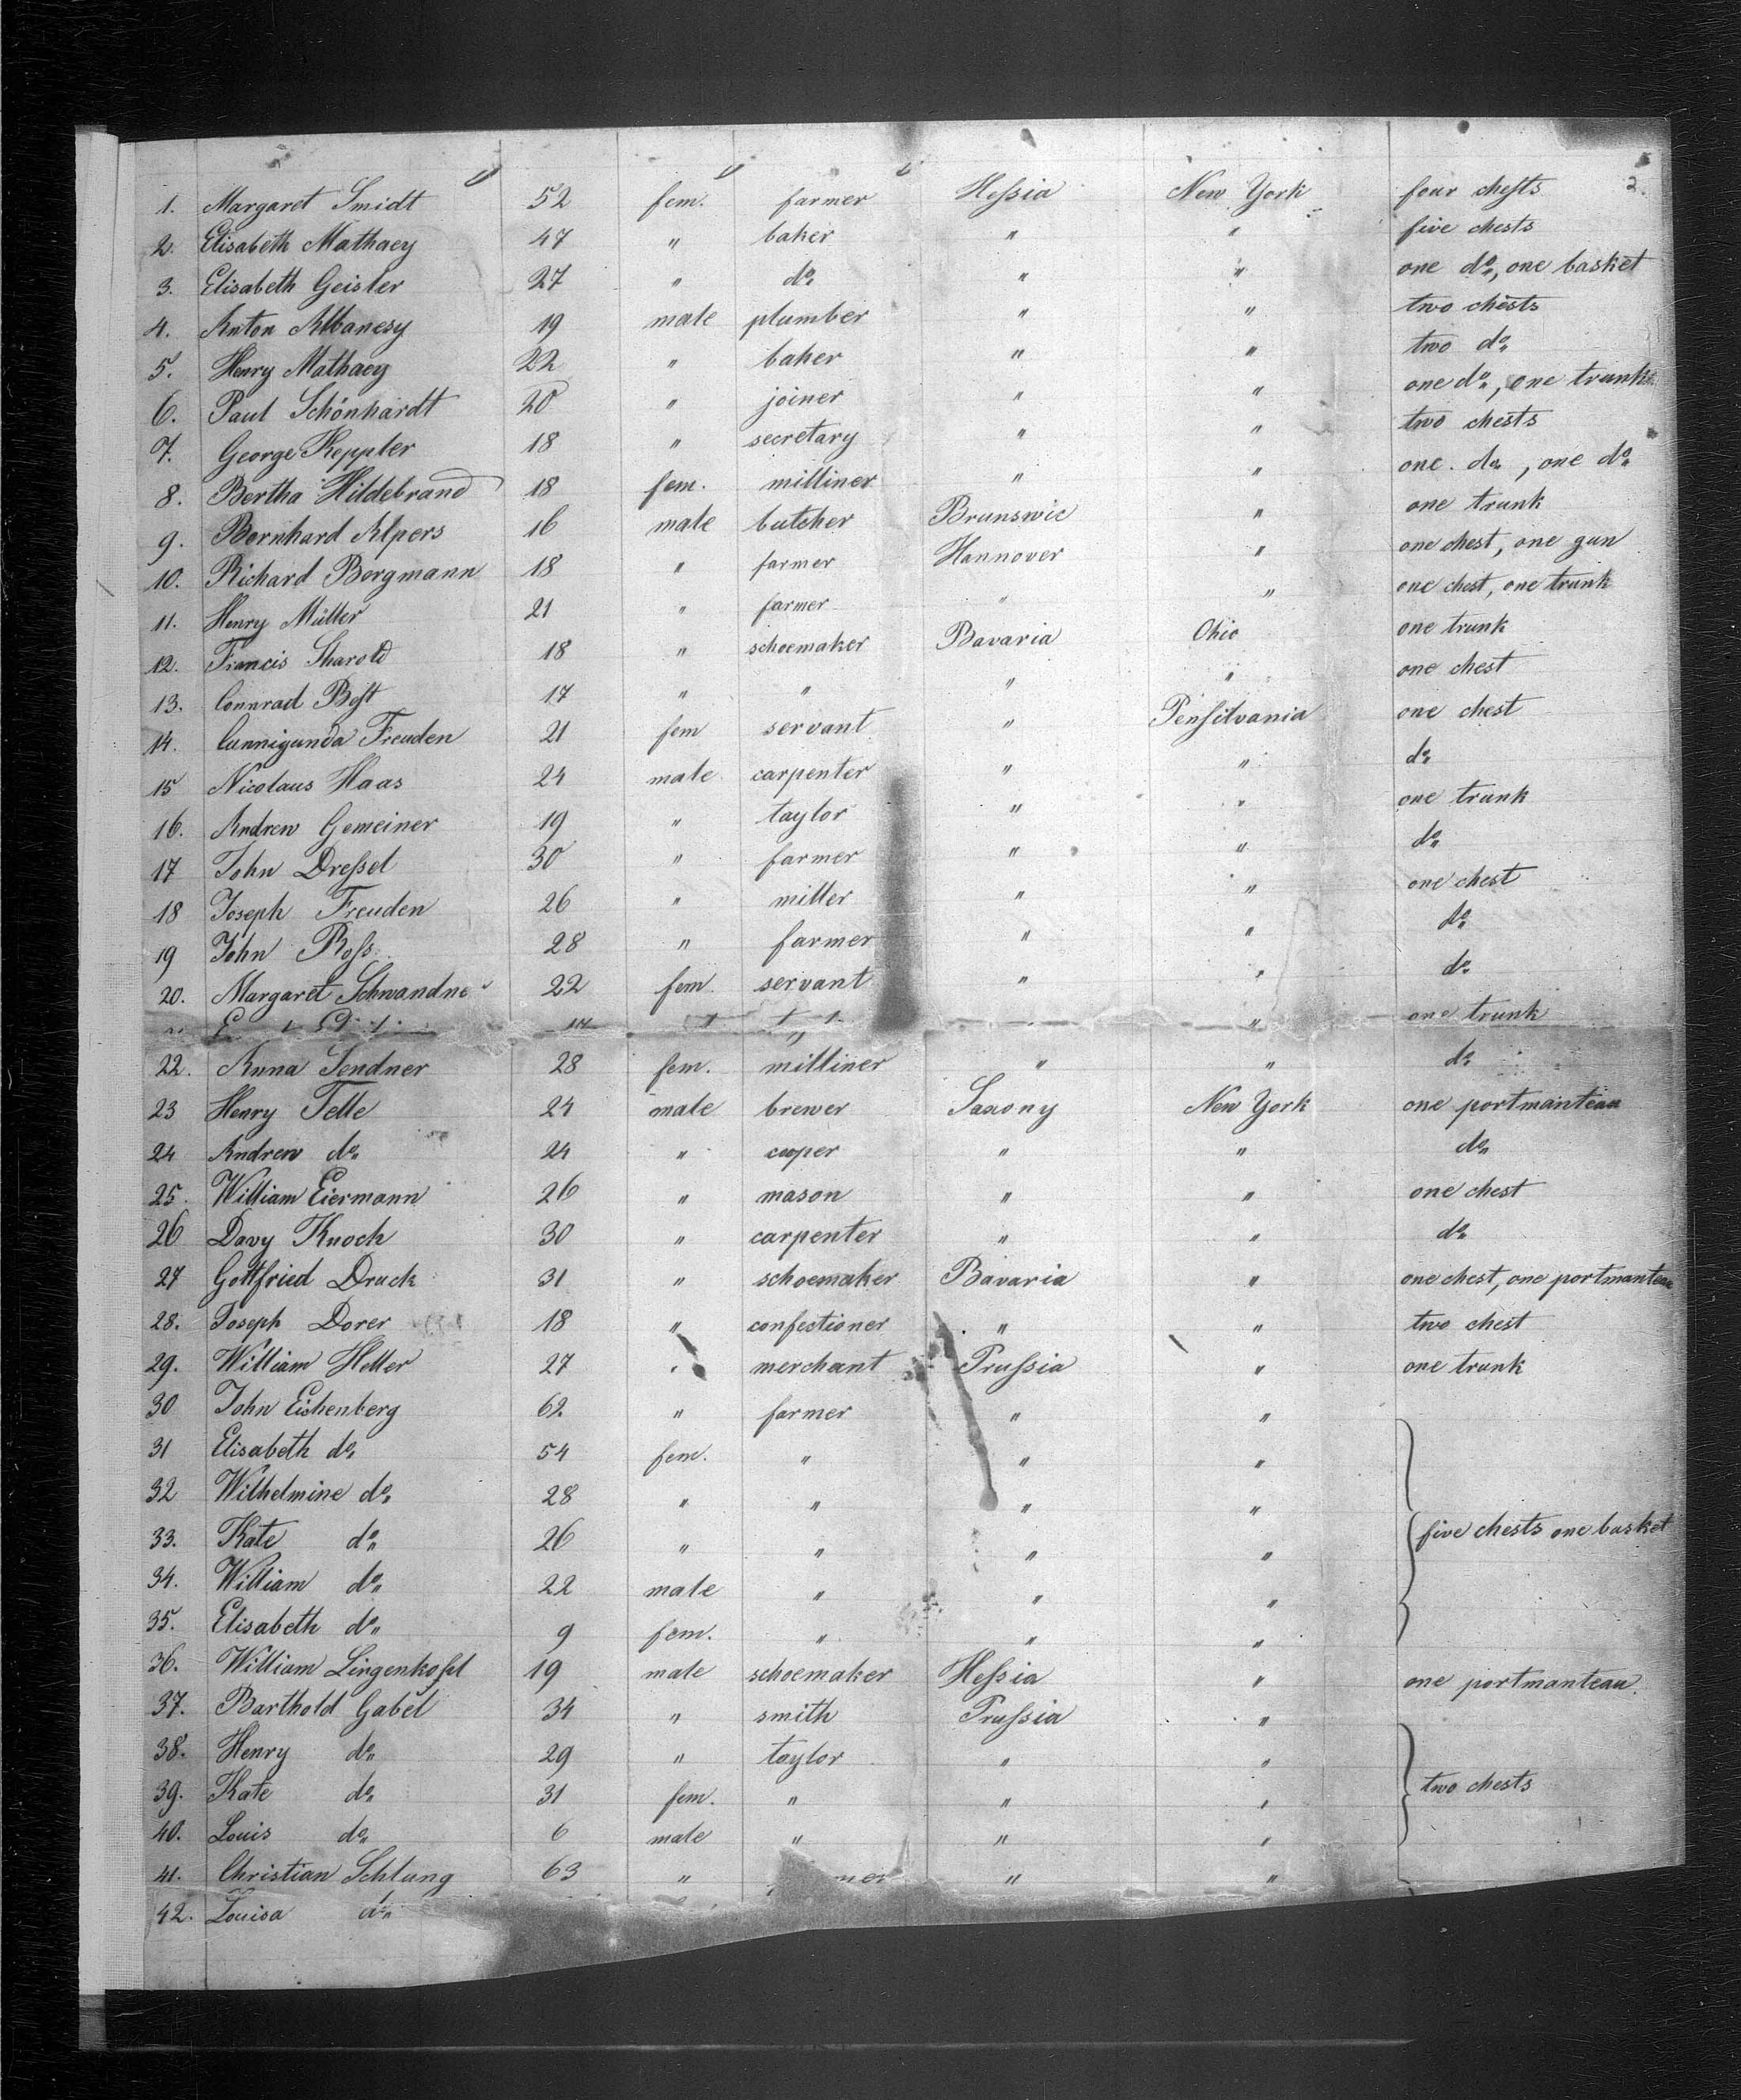 2.
1. Margaret Smidt 52 fem. farmer Hessia New York four chests
2. Elisabeth Mathaey 47 " baker " " five chests
3. Elisabeth Geisler 27 " do " " one do, one basket
4. Anton Albanesy 19 male plumber " " two chests
5. Henry Mathaey 22 " baker " " two do
6. Paul Schönhardt 20 " joiner " " one do, one trunk
7. George Keppler 18 " secretary " " two chests
8. Bertha Hildebrand 18 fem. milliner " " one. do, one do
9. Bernhard Alpers 16 male butcher Brunswic " one trunk
10. Richard Borgmann 18 " farmer Hannover " one chest, one gun
11. Henry Müller 21 " farmer " " one chest, one trunk
12. Francis Sharold 18 " schoemaker Bavaria Ohio one trunk
13. Connrad Best 17 " " " " one chest
14. Cunnigunda Freuden 21 fem servant " Pensilvania one chest
15 Nicolaus Haas 24 male carpenter " " do
16. Andrew Gemeiner 19 " taylor " " one trunk
17 John Dressel 30 " farmer " " do
18 Joseph Freuden 26 " miller " " one chest
19 John Ross 28 " farmer " " do
20. Margaret Schwandne 22 fem servant " " do
" one trunk
22. Anna Sendner 28 fem. milliner " " do
23 Henry Telle 24 male brewer Saxony New York one portmanteau
24 Andrew do 24 " cooper " " do
25. William Eiermann 26 " mason " " one chest
26 Davy Knoch 30 " carpenter " " do
27 Gottfried Druck 31 " schoemaker Bavaria " one chest, one portmanteau
28. Joseph Dorer 18 " confectioner " " two chest
29. William Heller 27 " merchant Prussia " one trunk
30 John Eichenberg 62 " farmer " "
31 Elisabeth do 54 fem. " " "
32 Wilhelmine do 28 " " " "
33. Kate do 26 " " " " five chests one basket
34. William do 22 male " " "
35. Elisabeth do 9 fem. " " "
36. William Lingenkohl 19 male schoemaker Hessia " one portmanteau.
37. Barthold Gabel 34 " smith Prussia "
38. Henry do 29 " taylor " "
39. Kate do 31 fem. " " " two chests
40. Louis do 6 male " " "
41. Christian Schlung 63 " " "
42. Louisa do